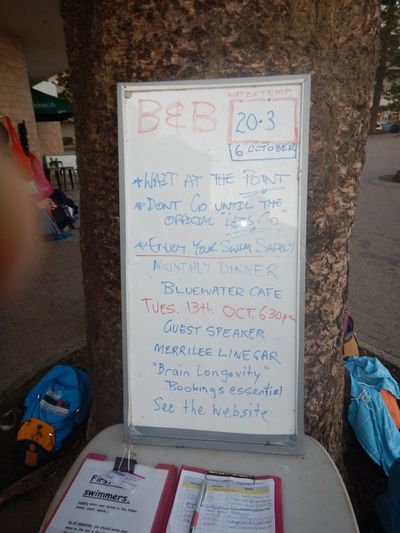 WATER TEMP
B&B
20.3
6 OCTOBER
*WAIT AT THE POINT
*DONT GO UNTIL THE
OFFICIAL "LETS GO"
*ENJOY YOUR SWIM SAFELY
MONTHLY DINNER
BLUEWATER CAFE
TUES. 13th OCT. 6.30pm
GUEST SPEAKER
MERRILEE LINEGAR
"Brain Longavity"
Bookings essential
See the website
First
swimmers.